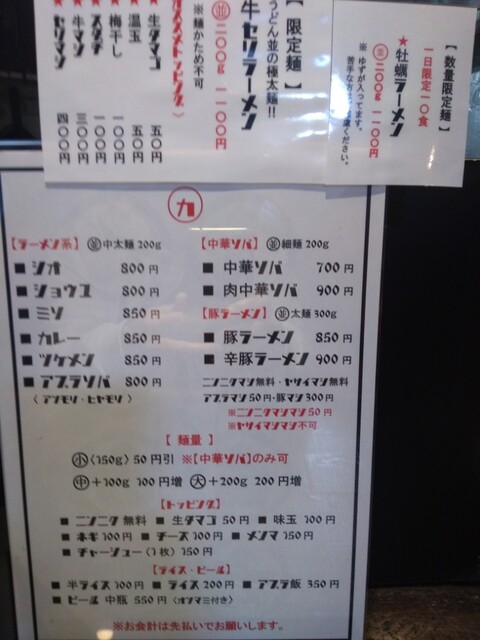 【数量限定麺】
一日限定一〇食
★牡蠣ラーメン
㊀二〇〇g 一一〇〇円
※ゆずが入ってます。
苦手な方は
ください。
【限定麺】
うどん並の極太麺!!
牛セリラーメン
㊀二〇〇g 一一〇〇円
※麺かため不可
トッピング〉
★生タマゴ 五〇円
★温玉 五〇円
★梅干し 一〇〇円
★スダチ 一〇〇円
★牛マシ 三〇〇円
★セリマシ 四〇〇円
カ
【ラーメン系】 (並)中太麺 200g
■ シオ 800円
■ ショウユ 800円
■ ミソ 850円
■ カレー 850円
■ ツケメン 850円
■ アブラソバ 800円
〈アツモリ・ヒヤモリ〉
【中華ソバ】 (並)細麺 200g
■ 中華ソバ 700円
■ 肉中華ソバ 900円
【豚ラーメン】 (並)太麺 300g
■ 豚ラーメン 850円
■ 辛豚ラーメン 900円
ニンニクマシ無料・ヤサイマシ無料
アブラマシ50円・豚マシ300円
※ニンニクマシマシ50円
※ヤサイマシマシ不可
【麺量】
(小)〈150g〉50円引 ※【中華ソバ】のみ可
(中)+100g 100円増 (大)+200g 200円増
【トッピング】
■ ニンニク 無料 ■ 生タマゴ 50円 ■ 味玉 100円
■ ネギ 100円 ■ チーズ 100円 ■ メンマ 150円
■ チャーシュー〈1枚〉150円
【ライス・ビール】
■ 半ライス 100円 ■ ライス 200円 ■ アブラ飯 350円
■ ビール 中瓶 550円〈オツマミ付き〉
※お会計は先払いでお願いします。